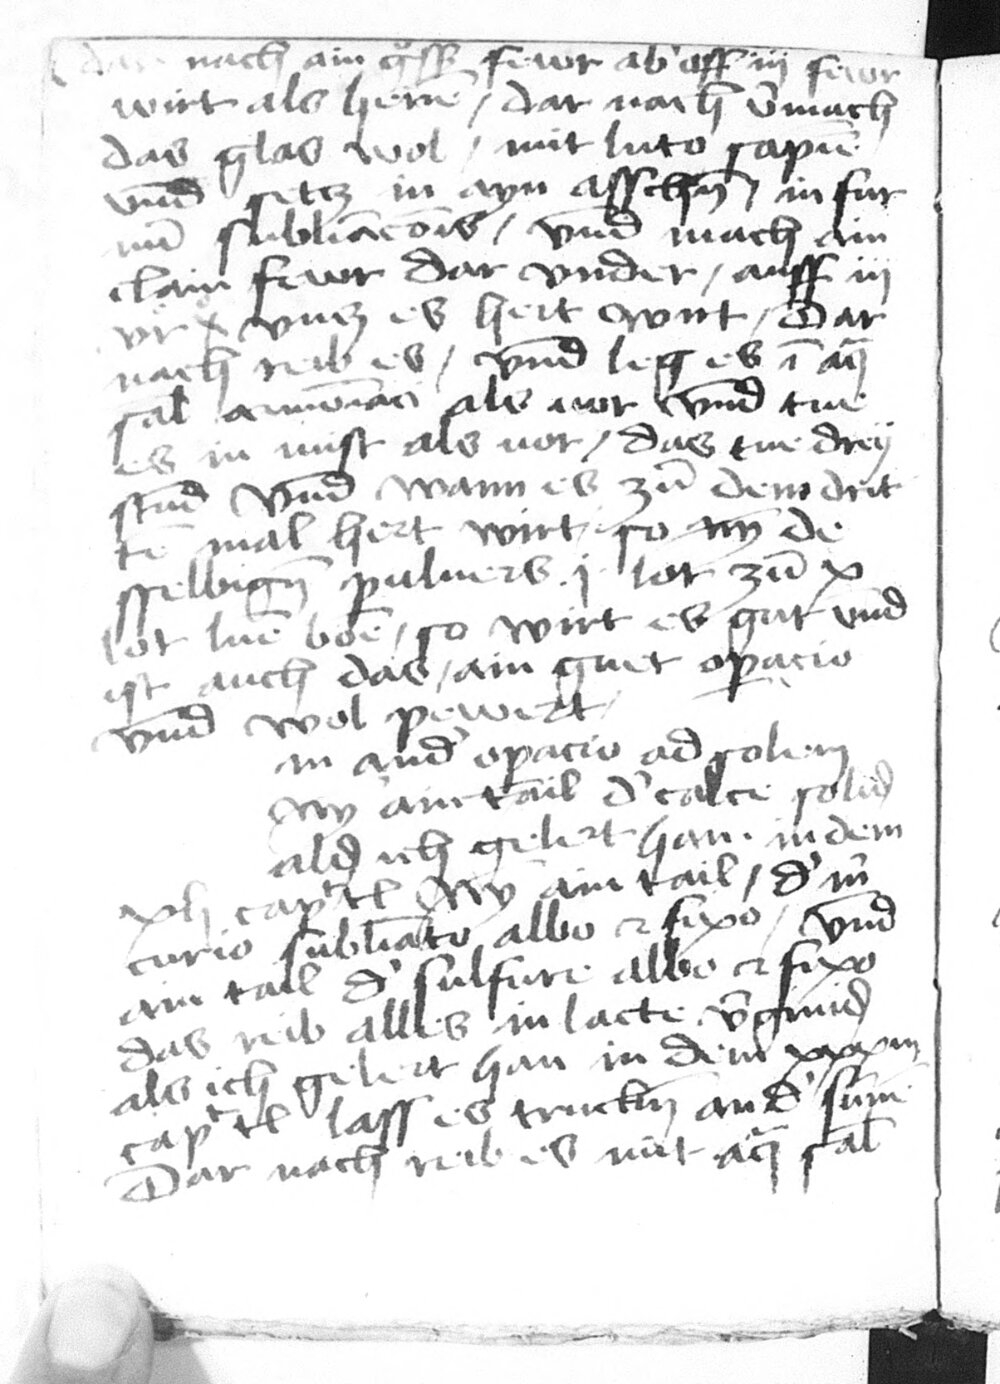 dar nach ain g̊ss fewr ab' auff iiij fewr
wirt als herñe / dar nach v̄mach
das glas wol / mit luto sapiē
vnnd setz in ayn asschñ / in fur
nū sublimac̄ois / vnnd mach ain
clain fewr dar vnder / auff iij
vr x vntz es hert wirt / Dar
nach reib es / vnnd leg es ī aq̄
sal armoniaci als vor vnnd tue
es in mist als vor / das tue dreÿ
stūd vnnd wann es zū dem drit
tē mal hert wirt so nȳ de
sselbigñ puluers j lot zū x
lot luē boē / so wirt es gut vnnd
ist auch das / ain guet op̄acio
vnnd wol pewert /
in and' op̄acio ad solem
Nȳ ain tail d' calce solis
als ich gelert han in dem
xlj cap'tl Nȳ ain tail / d' m̄
curio sublīato albo ⁊ fixo / vnnd
ain tail d' sulfure albo ⁊ fixo
das reib alles in lacte v̄ginis
als ich gelert han in dem xxxiii
cap'tl lass es truckñ an d' sūne
Dar nach reib es mit aq̄ sal